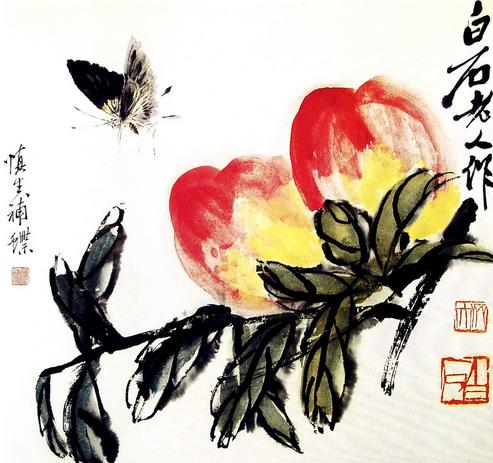 白石老人作
慎生補蝶